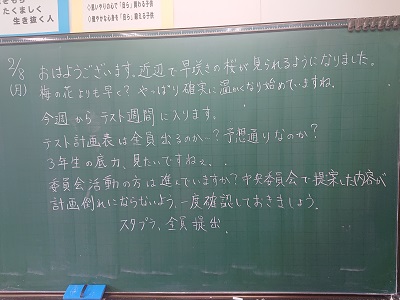 たくましく
生き抜く人
○思いやりの心で「自ら」関わる子供
○健やかな心身を「自ら」創る子供
2/8
(月)
おはようございます。近辺で早咲きの桜が見られるようになりました。
梅の花よりも早く? やっぱり確実に温かくなり始めていますね。
今週からテスト週間に入ります。
テスト計画表は全員出るのか…?予想通りなのか?
3年生の底力、見たいですねぇ..
委員会活動の方は進んでいますか?中央委員会で提案した内容が
計画倒れにならないよう、一度確認しておきましょう。
スタプラ、全員提出.